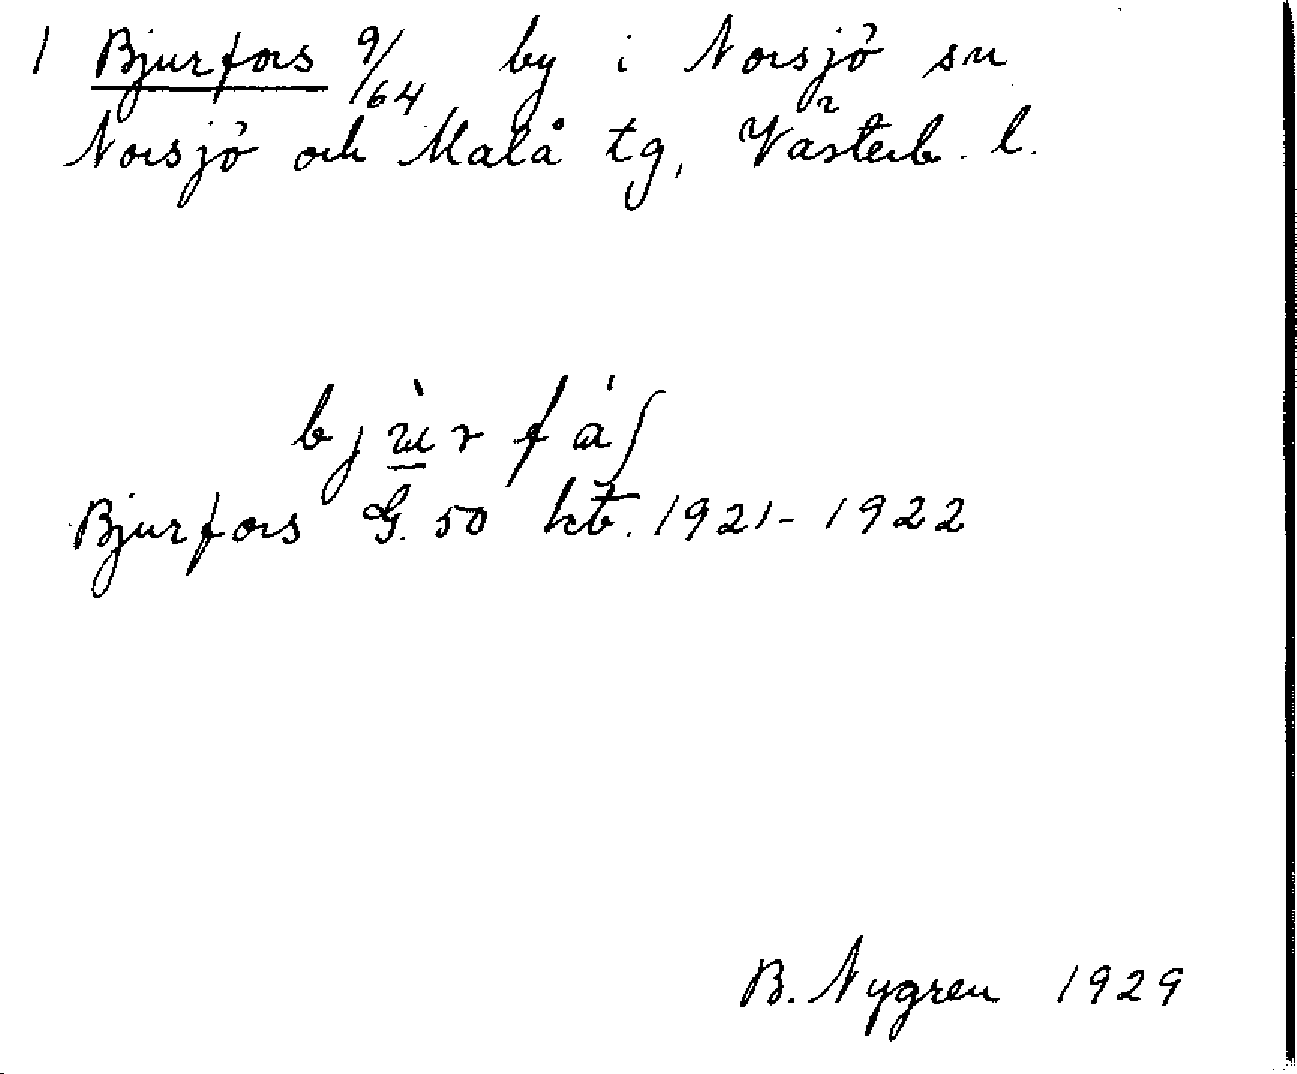 1 Bjurfors 9/64 by i Norsjö sn
Norsjö och Malå tg, Västerb. l.
bjùrfáʃ
Bjurfors G. 50 kb. 1921-1922
B. Nygren 1929